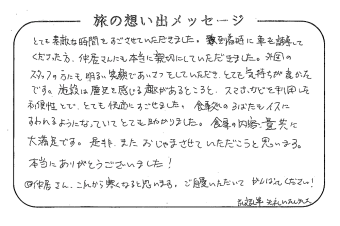 旅の想い出メッセージ
とても素敵な時間をすごさせていただきました。 到着時に車を誘導して
くださった方、仲居さんにも本当に親切にしていただきました。外国の
スタッフの方にも明るい笑顔であいさつをしていただき、とても気持ちが良かった
です。施設は歴史を感じる趣があるところと、スマホなどを利用した
利便性とで、とても快適にすごせました。食事処のそばにもイスに
すわれるようになっていてとても助かりました。食事の内容、量共に
大満足です。是非、またおじゃまさせていただこうと思います。
本当にありがとうございました!
仲居さん、これから寒くなると思います。ご自愛いただいて がんばってください!